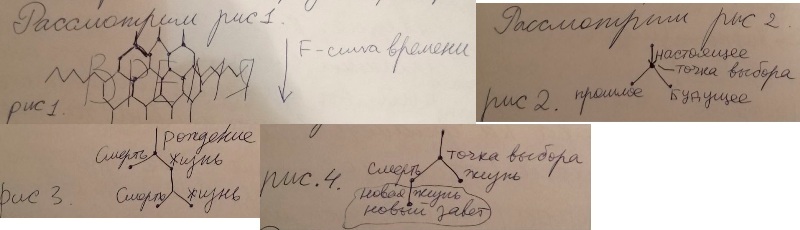 Рассмотрим рис 1.
F-сила времени
ВРЕМЯ
рис 1.
Рассмотрим рис 2.
настоящее
точка выбора
прошлое
Будущее
рис 2.
Рождение
Смерть
жизнь
Смерть
жизнь
рис 3.
точка выбора
Смерть
жизнь
рис. 4.
новая жизнь
новый завет